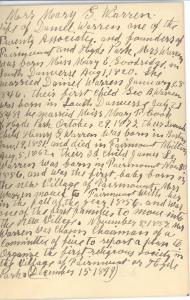 Mrs Mary E. Warren
wife of Daniel Warren one of the
Twenty Associates, and founders of
Fairmount and Hyde Park. Mrs Warren
was born Miss Mary E. Goodridge, in
South Danvers Aug 1, 1820. She
married Daniel Warren January 23
1844. Their first child Geo B Warren
was born in South Danvers July 21
1849 he married Miss Mary P. Cook
Hyde Park October 29, 1873. Their
Mary E. Warren was born in
1851 and died in Fairmount
Their 3d child James L.
Warren was born in Fairmount
1856, and was the first baby born in
the new Village of Fairmount. Mrs
Warren moved to Fairmount with
in the fall of the year 1856, and was
one of the first families to move into
the new Village. November 8, 1857 Mrs
Warren was chosen Chairman of a
Committee of five to report a plan to
organize the first religious society in
the Village of Fairmount or Hyde
Park. (December 15" 1899)